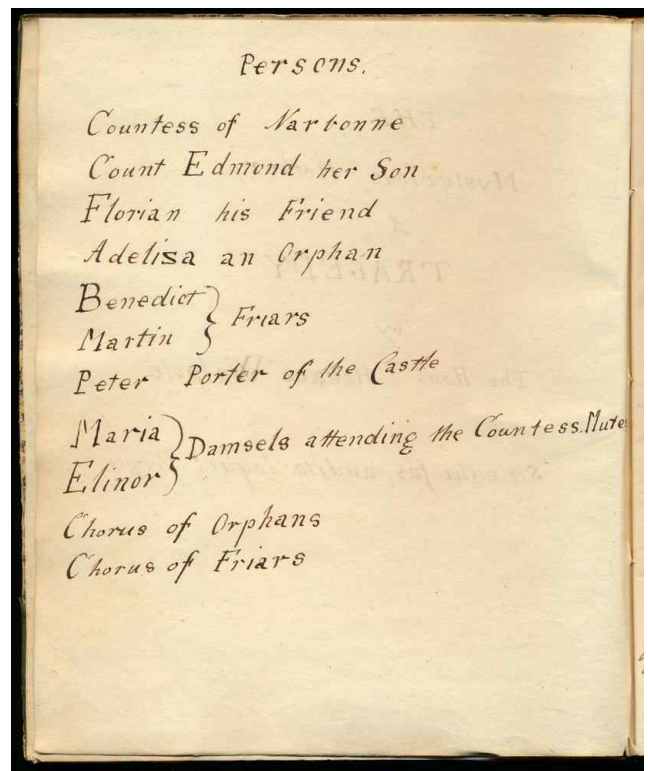 Persons.
Countess of Narbonne
Count Edmond her Son
Florian his Friend
Adelisa an Orphan
Benedict } Friars
Martin
Peter Porter of the Castle
Maria } Damsels attending the Countess. Mutes
Elinor
Chorus of Orphans
Chorus of Friars